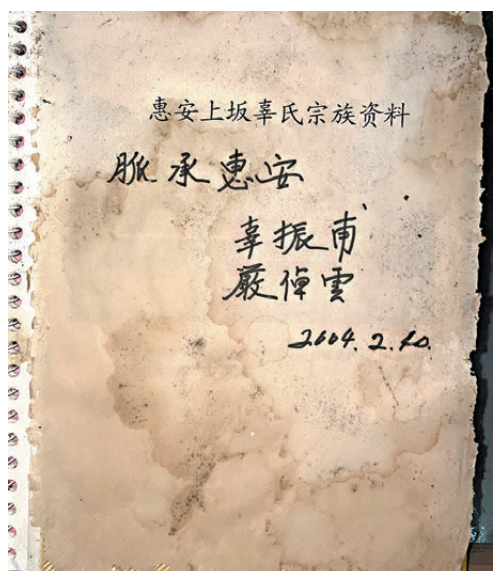 惠安上坂辜氏宗族资料
脈承惠安
辜振甫
嚴倬雲
2004.2.20.